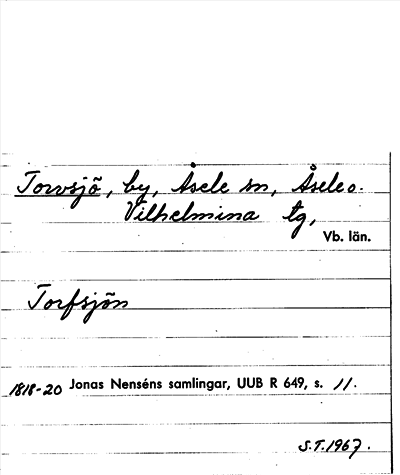 Torvsjö, by, Åsele sn, Åsele o.
Vilhelmina tg,
Vb. län.
Torfsjön
1818-20 Jonas Nenséns samlingar, UUB R 649, s. 11.
S.T. 1967.